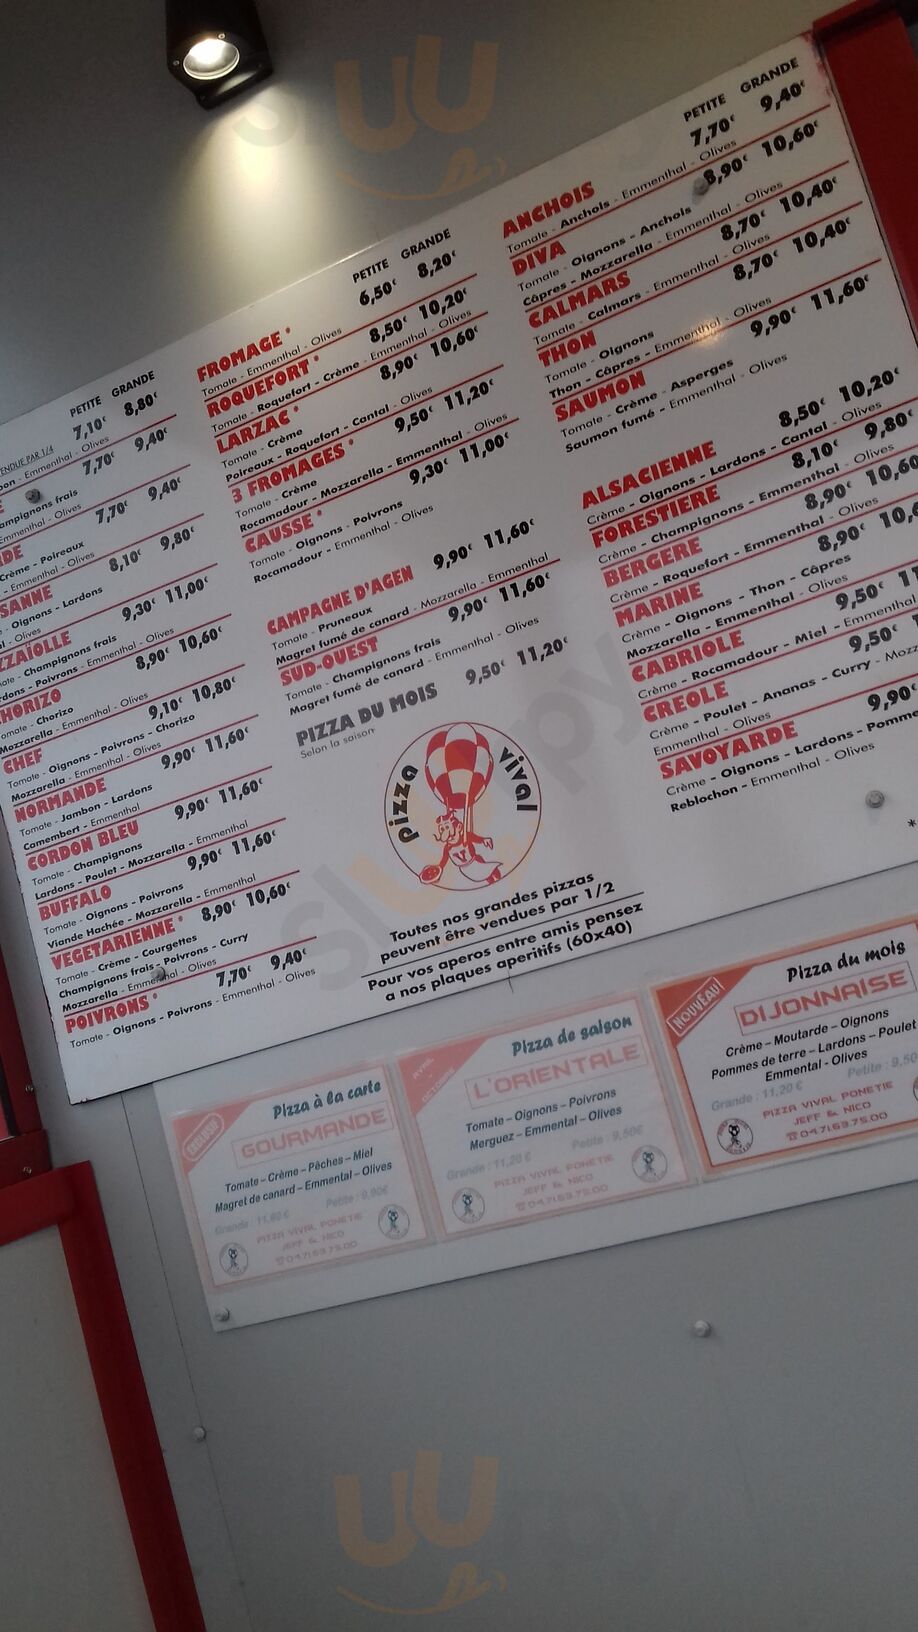 PETITE GRANDE
7,10€ 8,80€
ENDUE PAR 1/4
bon - Emmenthal - Olives
7,70€ 9,40€
ampignons frais
Emmenthal - Olives
DE
7,70€ 9,40€
Crème - Poireaux
- Emmenthal - Olives
SANNE
8,10€ 9,80€
- Oignons - Lardons
al - Olives
ZZAÏOLLE
9,30€ 11,00€
ate - Champignons frais
rdons - Poivrons - Emmenthal - Olives
HORIZO
8,90€ 10,60€
omate - Chorizo
Mozzarella - Emmenthal - Olives
CHEF
9,10€ 10,80€
Tomate - Oignons - Poivrons - Chorizo
Mozzarella - Emmenthal - Olives
NORMANDE
9,90€ 11,60€
Tomate - Jambon - Lardons
Camembert - Emmenthal
CORDON BLEU
9,90€ 11,60€
Tomate - Champignons
Lardons - Poulet - Mozzarella - Emmenthal
BUFFALO
9,90€ 11,60€
Tomate - Oignons - Poivrons
Viande Hachée - Mozzarella - Emmenthal
VEGETARIENNE *
8,90€ 10,60€
Tomate - Crème - Courgettes
Champignons frais - Poivrons - Curry
Mozzarella - Emmenthal - Olives
POIVRONS *
7,70€ 9,40€
Tomate - Oignons - Poivrons - Emmenthal - Olives
PETITE GRANDE
FROMAGE *
6,50€ 8,20€
Tomate - Emmenthal - Olives
ROQUEFORT *
8,50€ 10,20€
Tomate - Roquefort - Crème - Emmenthal - Olives
LARZAC *
8,90€ 10,60€
Tomate - Crème
Poireaux - Roquefort - Cantal - Olives
3 FROMAGES *
9,50€ 11,20€
Tomate - Crème
Rocamadour - Mozzarella - Emmenthal - Olives
CAUSSE *
9,30€ 11,00€
Tomate - Oignons - Poivrons
Rocamadour - Emmenthal - Olives
CAMPAGNE D'AGEN
9,90€ 11,60€
Tomate - Pruneaux
Magret fumé de canard - Mozzarella - Emmenthal
SUD-OUEST
9,90€ 11,60€
Tomate - Champignons frais
Magret fumé de canard - Emmenthal - Olives
PIZZA DU MOIS
9,50€ 11,20€
Selon la saison
pizza vival
Toutes nos grandes pizzas
peuvent être vendues par 1/2
Pour vos aperos entre amis pensez
a nos plaques aperitifs (60x40)
PETITE GRANDE
ANCHOIS
7,70€ 9,40€
Tomate - Anchois - Emmenthal - Olives
DIVA
8,90€ 10,60€
Tomate - Oignons - Anchois
Câpres - Mozzarella - Emmenthal - Olives
CALMARS
8,70€ 10,40€
Tomate - Calmars - Emmenthal - Olives
THON
8,70€ 10,40€
Tomate - Oignons
Thon - Câpres - Emmenthal - Olives
SAUMON
9,90€ 11,60€
Tomate - Crème - Asperges
Saumon fumé - Emmenthal - Olives
ALSACIENNE
8,50€ 10,20€
Crème - Oignons - Lardons - Cantal - Olives
FORESTIERE
8,10€ 9,80€
Crème - Champignons - Emmenthal - Olives
BERGERE
8,90€ 10,60
Crème - Roquefort - Emmenthal - Olives
MARINE
8,90€ 10,6
Crème - Oignons - Thon - Câpres
Mozzarella - Emmenthal - Olives
CABRIOLE
9,50€ 11
Crème - Rocamadour - Miel - Emmenthal
CREOLE
9,50€ 1
Crème - Poulet - Ananas - Curry - Mozz
Emmenthal - Olives
SAVOYARDE
9,90€
Crème - Oignons - Lardons - Pomme
Reblochon - Emmenthal - Olives
*
Pizza à la carte
GOURMANDE
Tomate – Crème – Pêches – Miel
Magret de canard – Emmental – Olives
Grande : 11,60 € Petite : 9,90€
PIZZA VIVAL PONETIE
JEFF & NICO
☎04.71.63.75.00
AVRIL
-
OCTOBRE
Pizza de saison
L'ORIENTALE
Tomate – Oignons – Poivrons
Merguez – Emmental – Olives
Grande : 11,20 € Petite : 9,50€
PIZZA VIVAL PONETIE
JEFF & NICO
☎04.71.63.75.00
NOUVEAU
Pizza du mois
DIJONNAISE
Crème – Moutarde – Oignons
Pommes de terre – Lardons – Poulet
Emmental - Olives
Grande : 11,20 € Petite : 9,50
PIZZA VIVAL PONETIE
JEFF & NICO
☎04.71.63.75.00